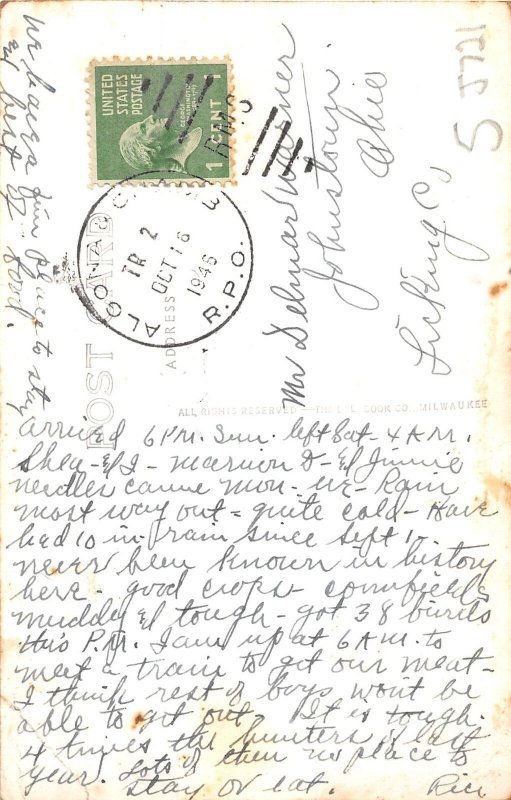 we have a fine place to stay
best of food.
UNITED
STATES
POSTAGE
1 CENT 1
R.M.S
ALGONA &
TR 2
OCT 16
1946
R.P.O.
POST CARD
ADDRESS
5721
5
Mr Delmar Warner
Johnstown
Ohio
Licking Co
ALL RIGHTS RESERVED — THE L. L. COOK CO., MILWAUKEE
arrived 6 P.M. Sun. left Sat - 4 A M.
Shea - & I - Marion D - & Jimmie
Needles came Mon - eve - Rain
most way out - quite cold - Have
had 10 in rain since Sept 1 -
never been known in history
here. good crops - cornfields
muddy & tough - got 38 birds
this P.M. I am up at 6 A M. to
meet a train to get our meat -
I think rest of boys won't be
able to get out. It is tough.
4 times the hunters of last
year. Lots of them no place to
stay or eat.